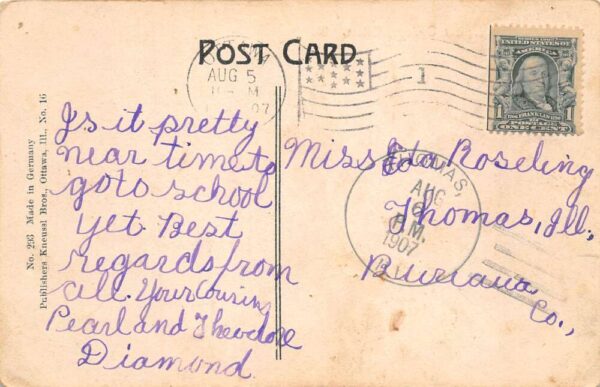 POST CARD
AUG 5
07
1
UNITED STATES OF
AMERICA
1 1
FRANKLIN
POSTAGE
ONE CENT
THOMAS,
AUG
6
P.M.
1907
ILL.
Is it pretty
near time to
go to school
yet. Best
regards from
all. Your Cousins
Pearl and Theodore
Diamond.
Miss Ida Roseling
Thomas, Ill.,
Bureau
Co.,
No. 293 Made in Germany
Publishers Kneussl Bros., Ottawa, Ill., No. 16